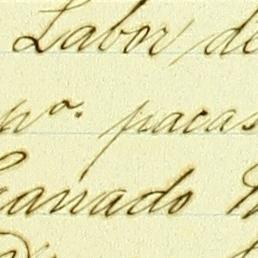 Labor, de
nº. pacas
Ganado